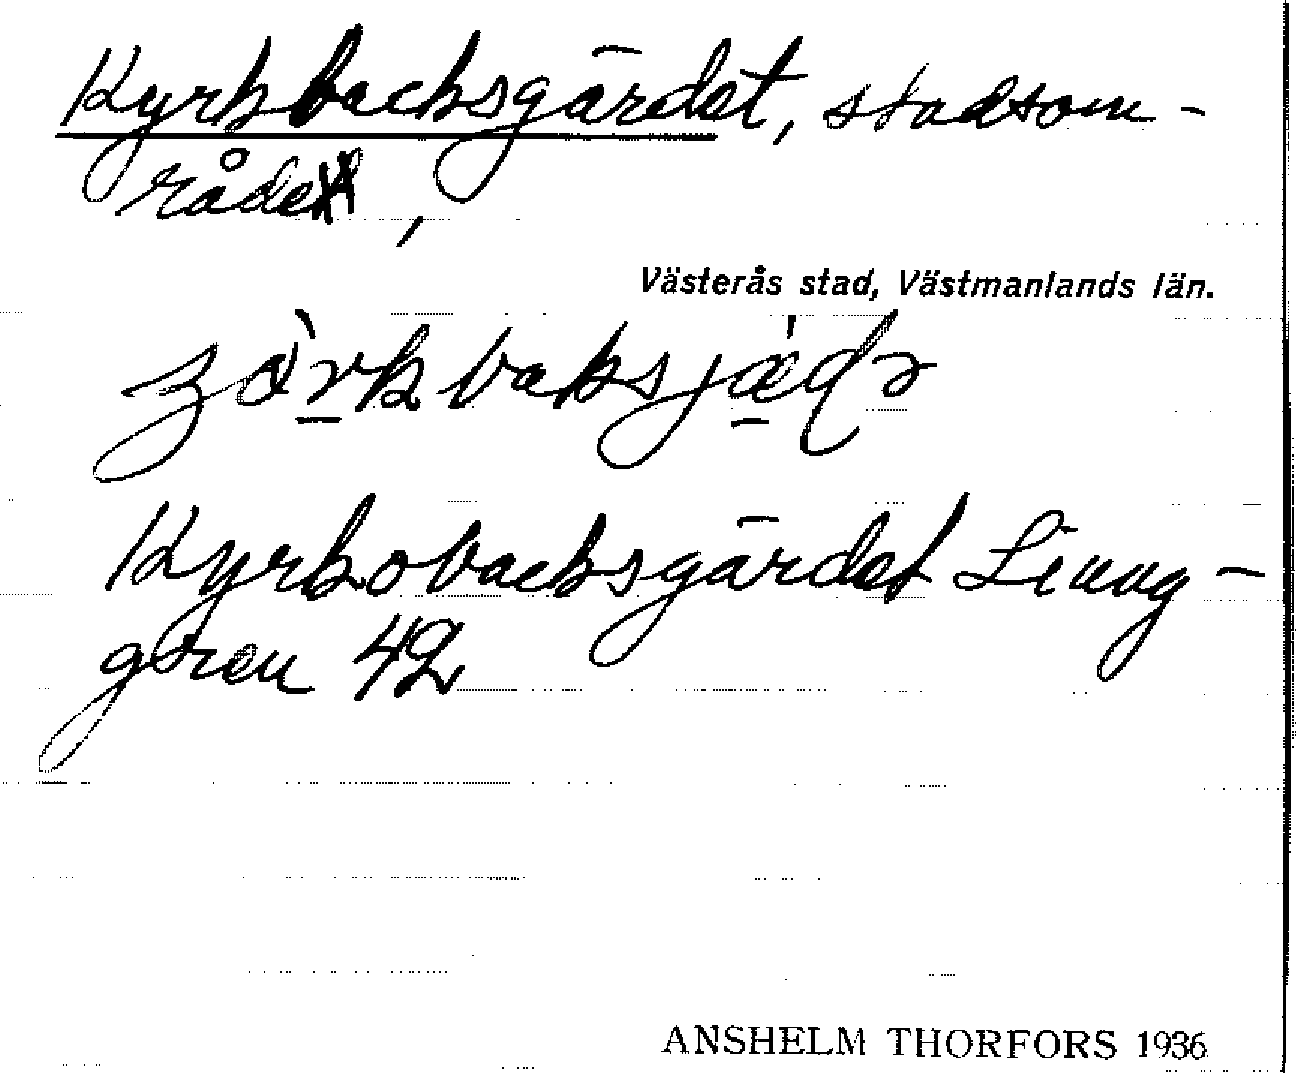 Kyrkbacksgärdet, stadsom-
råde,
Västerås stad, Västmanlands län.
Kyrkobacksgärdet Ljung-
gren 42
ANSHELM THORFORS 1936